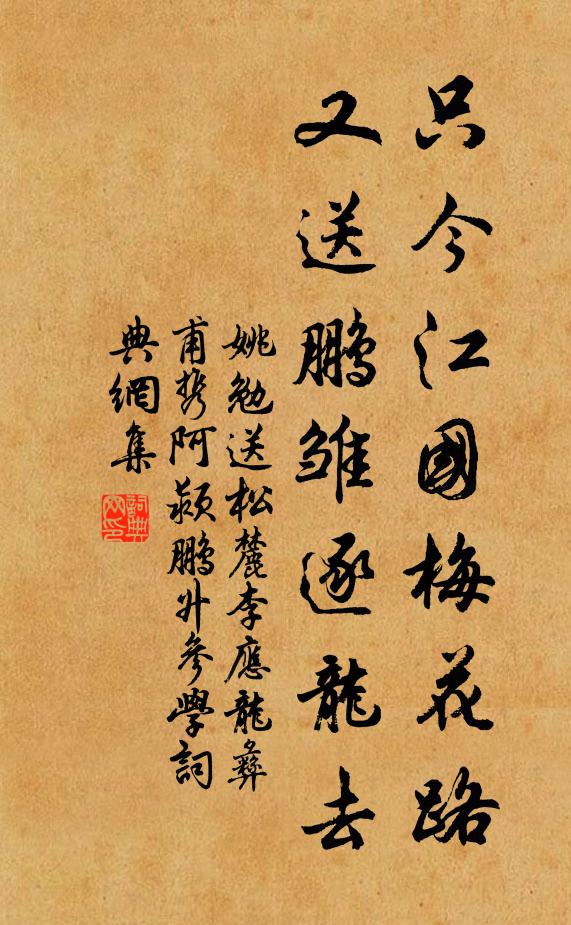 只今江國梅花路
又送鵬雏逐龍去
姚勉送松麓李應龍彝
甫携阿颍鵬升參學詞
典網集
詞典网印